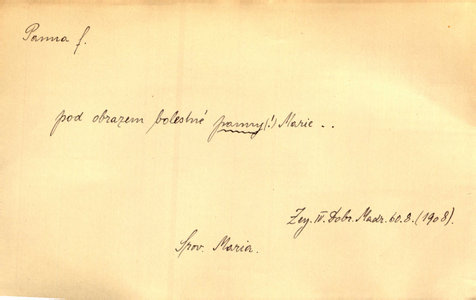 Panna f.
pod obrazem bolestné panny (!) Marie ..
Zey. IV. Dobr. Madr. 60. 8. (1908).
Srov. Maria.